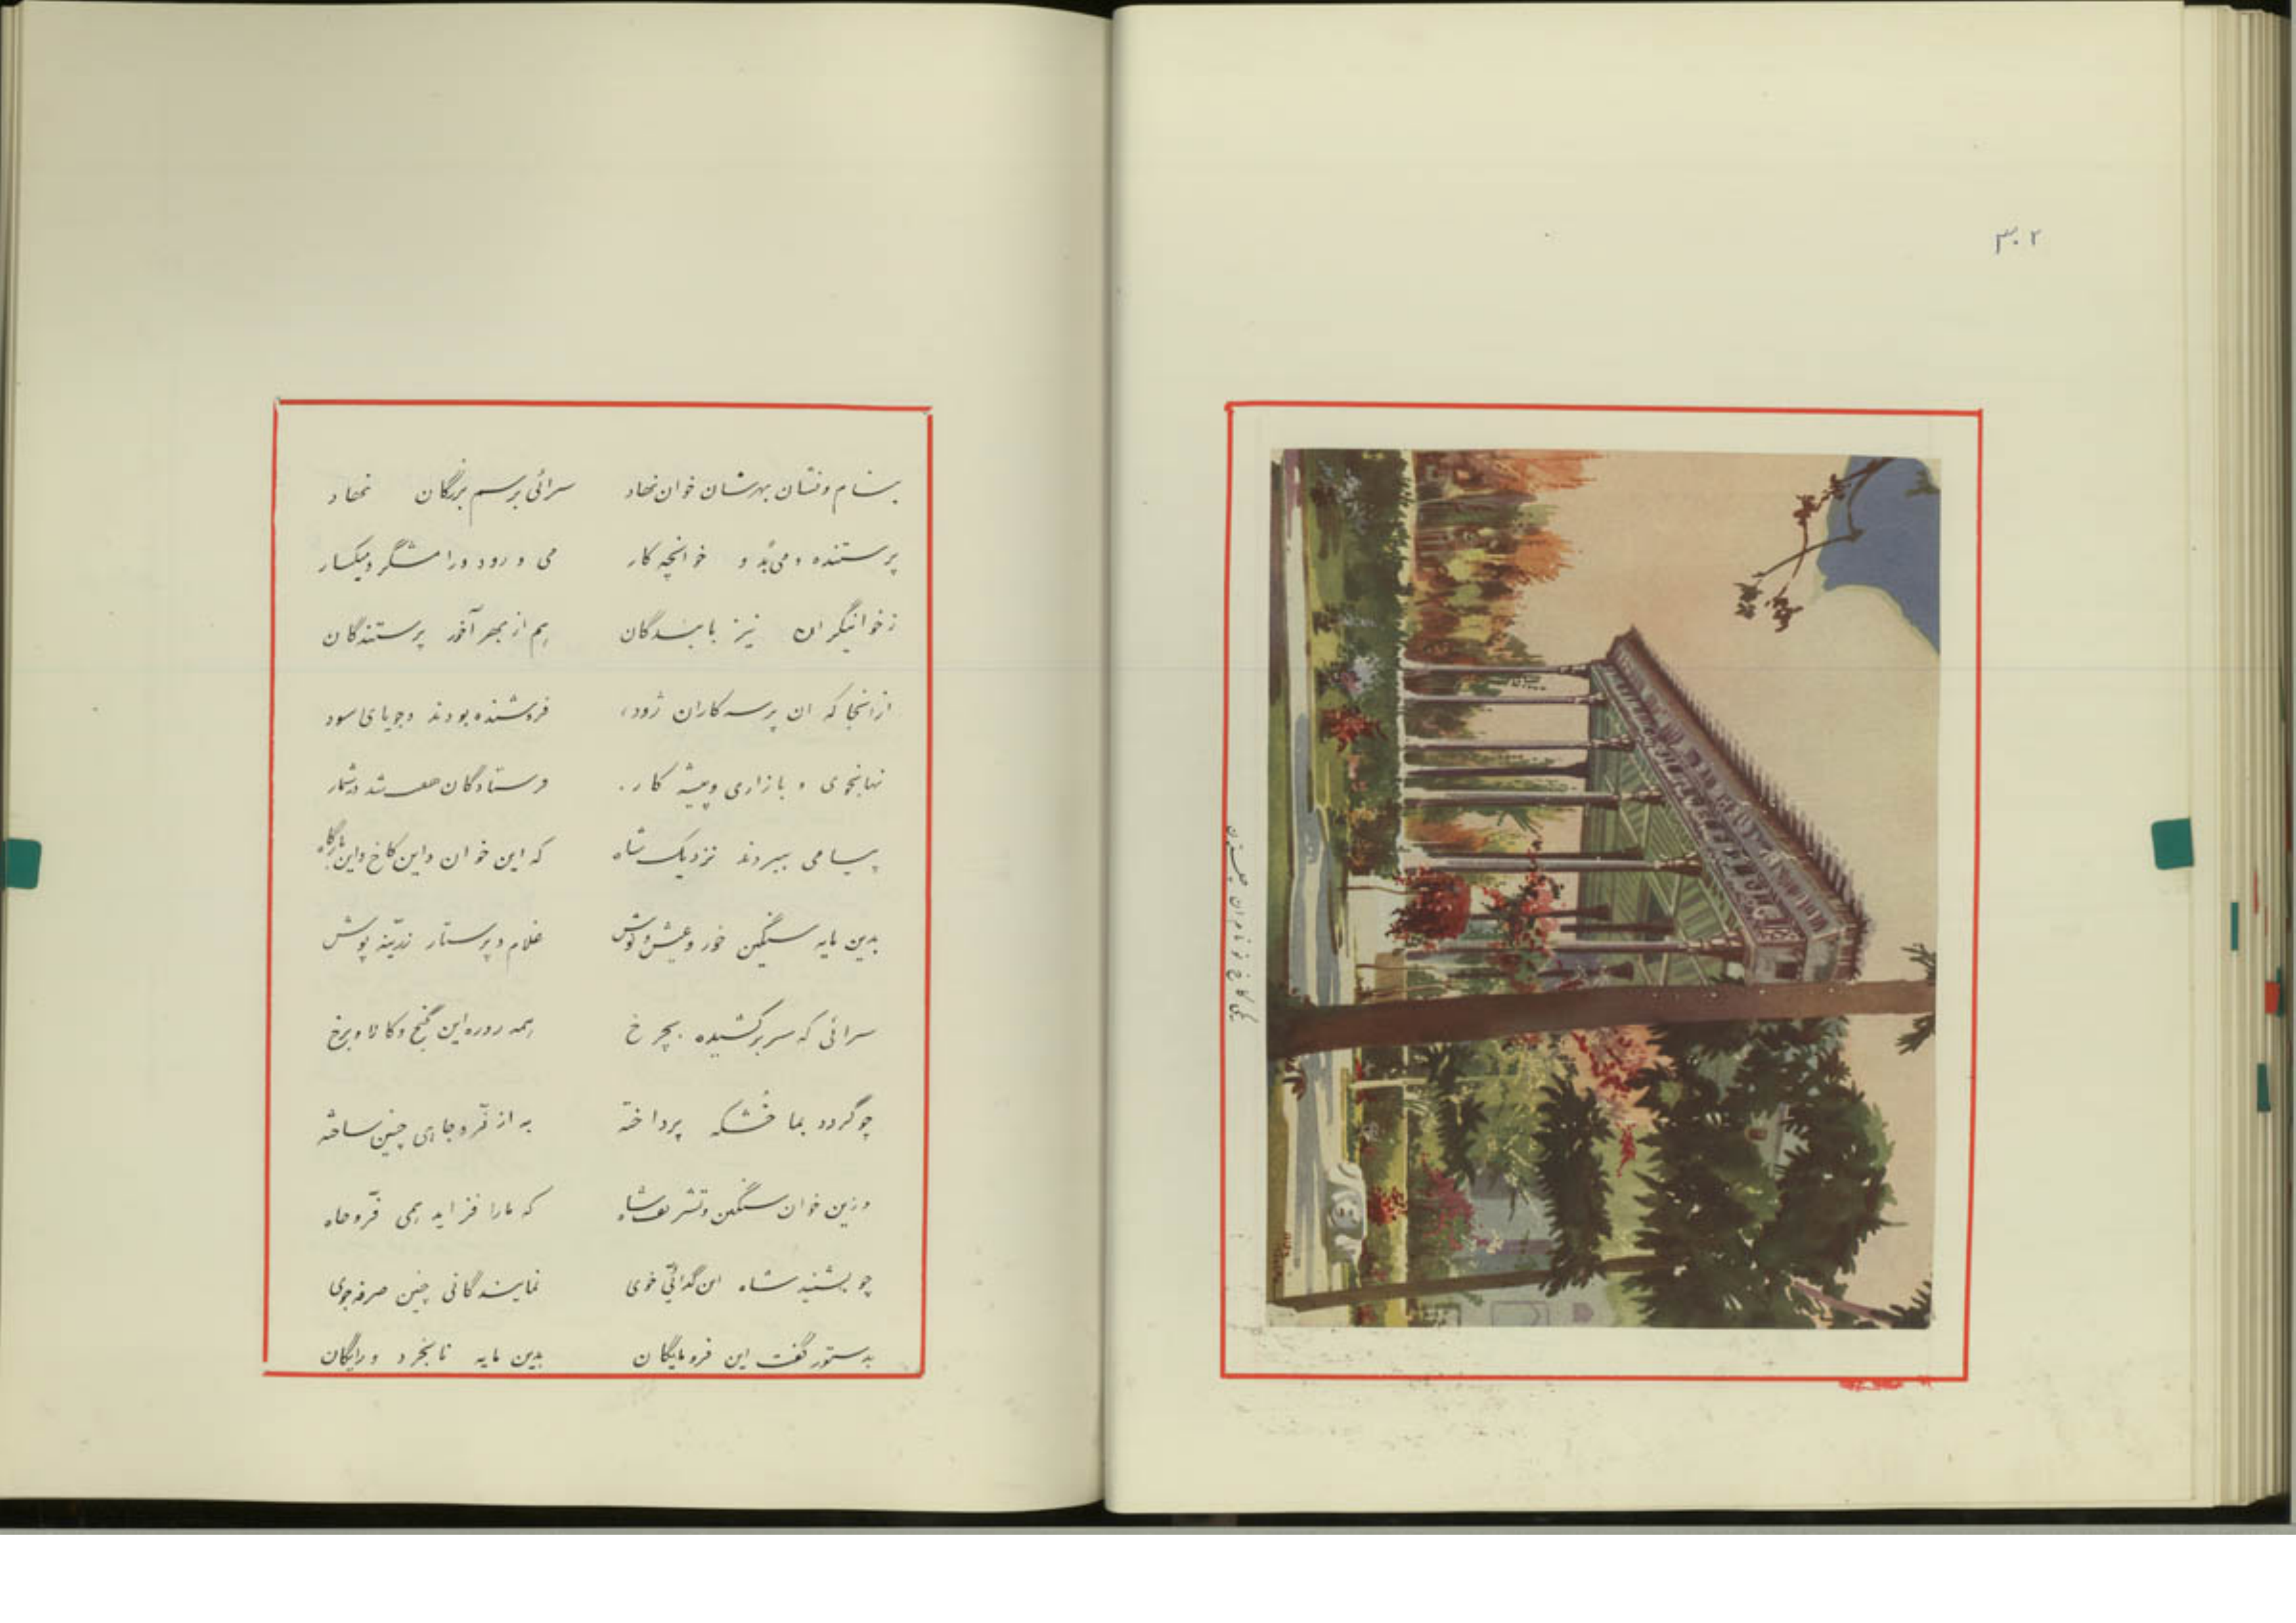 ۳۰۲
یکی کاخ نو نام آن چلستون
بنام و نشان بهرشان خوان نهاد سرائی برسم بزرگان نهاد
پرستنده و می‌بُد و خوانچه کار می و رود و رامشگر و میگسار
ز خوانیگران نیز بایسدگان هم از بهر آخور پرستندگان
از آنجا که آن پرسه کاران زود، فروشنده بودند و جویای سود
و بازاری و پیشه کار. فرستادگان شد در شمار
پیامی ببردند نزدیک شاه که این خوان و این کاخ و این بارگاه
بدین مایه سنگین خور و نوش غلام و پرستار زرینه پوش
سرائی که سر بر کشیده بچرخ همه روزه این گنج و کالا و برخ
چو گردد بما خشکه پرداخته به از فرّ و جاهی چنین ساخته
وزین خوان سنگین و تشریف شاه که ما را فزاید همی فرّ و جاه
چو بشنید شاه این گدائی خوی نمایندگانی چنین صرفه جوی
بدستور گفت این فرومایگان بدین مایه نابخرد و رایگان